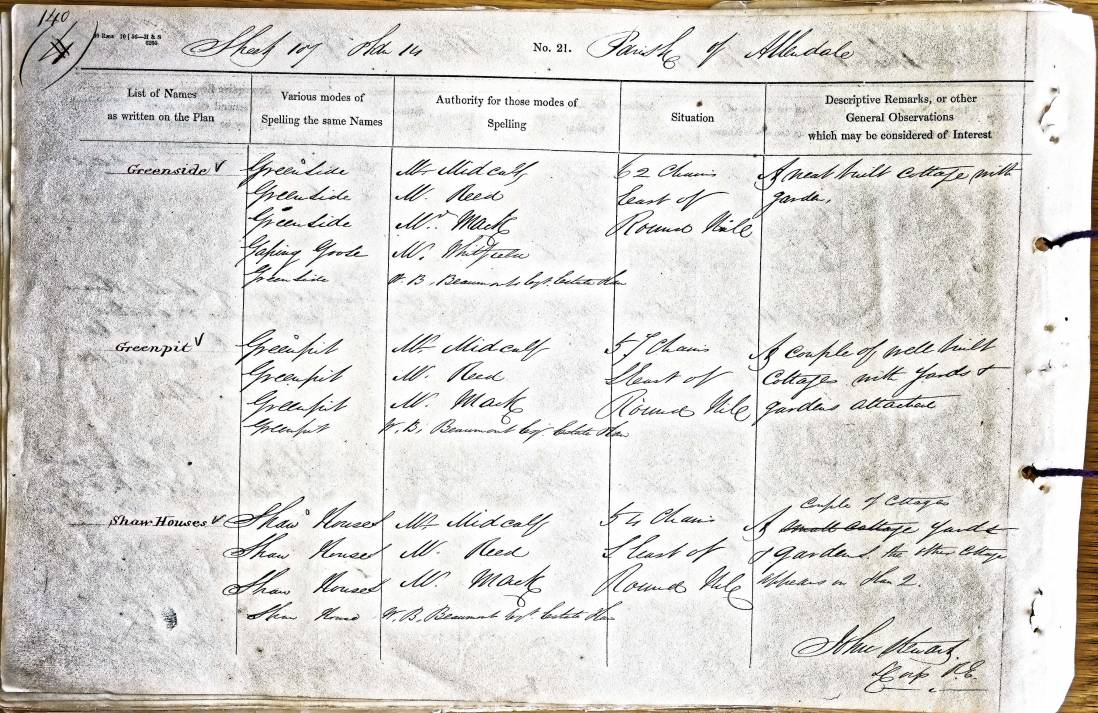 140
Sheet 107 Plan 14 No. 21. Parish of Allendale
List of Names
as written on the Plan
Various modes of
Spelling the same Names
Authority for those modes of
Spelling
Situation
Descriptive Remarks, or other
General Observations
which may be considered of Interest
Greenside Greenside Mr Midcalf 62 Chains A neat built cottage with
Greenside Mr. Reed East of garden.
Greenside Mr. Mack Round Hill
Gaping Goose Mr. Whitfield
Greenside W. B. Beaumont Esqr. Estate Plan
Greenpit Greenpit Mr Midcalf 57 Chains A couple of well built
Greenpit Mr. Reed S East of Cottages with yards &
Greenpit Mr. Mack Round Hill gardens attached
Greenpit W. B. Beaumont Esqr. Estate Plan
Couple of Cottages
Shaw Houses Shaw Houses Mr Midcalf 54 Chains A small Cottage yards
Shaw Houses Mr. Reed S East of & Gardens. the other Cottage
Shaw Houses Mr. Mack Round Hill appears in Plan 2.
Shaw House W. B. Beaumont Esqr. Estate Plan
John Stewart
L Corp R.E.